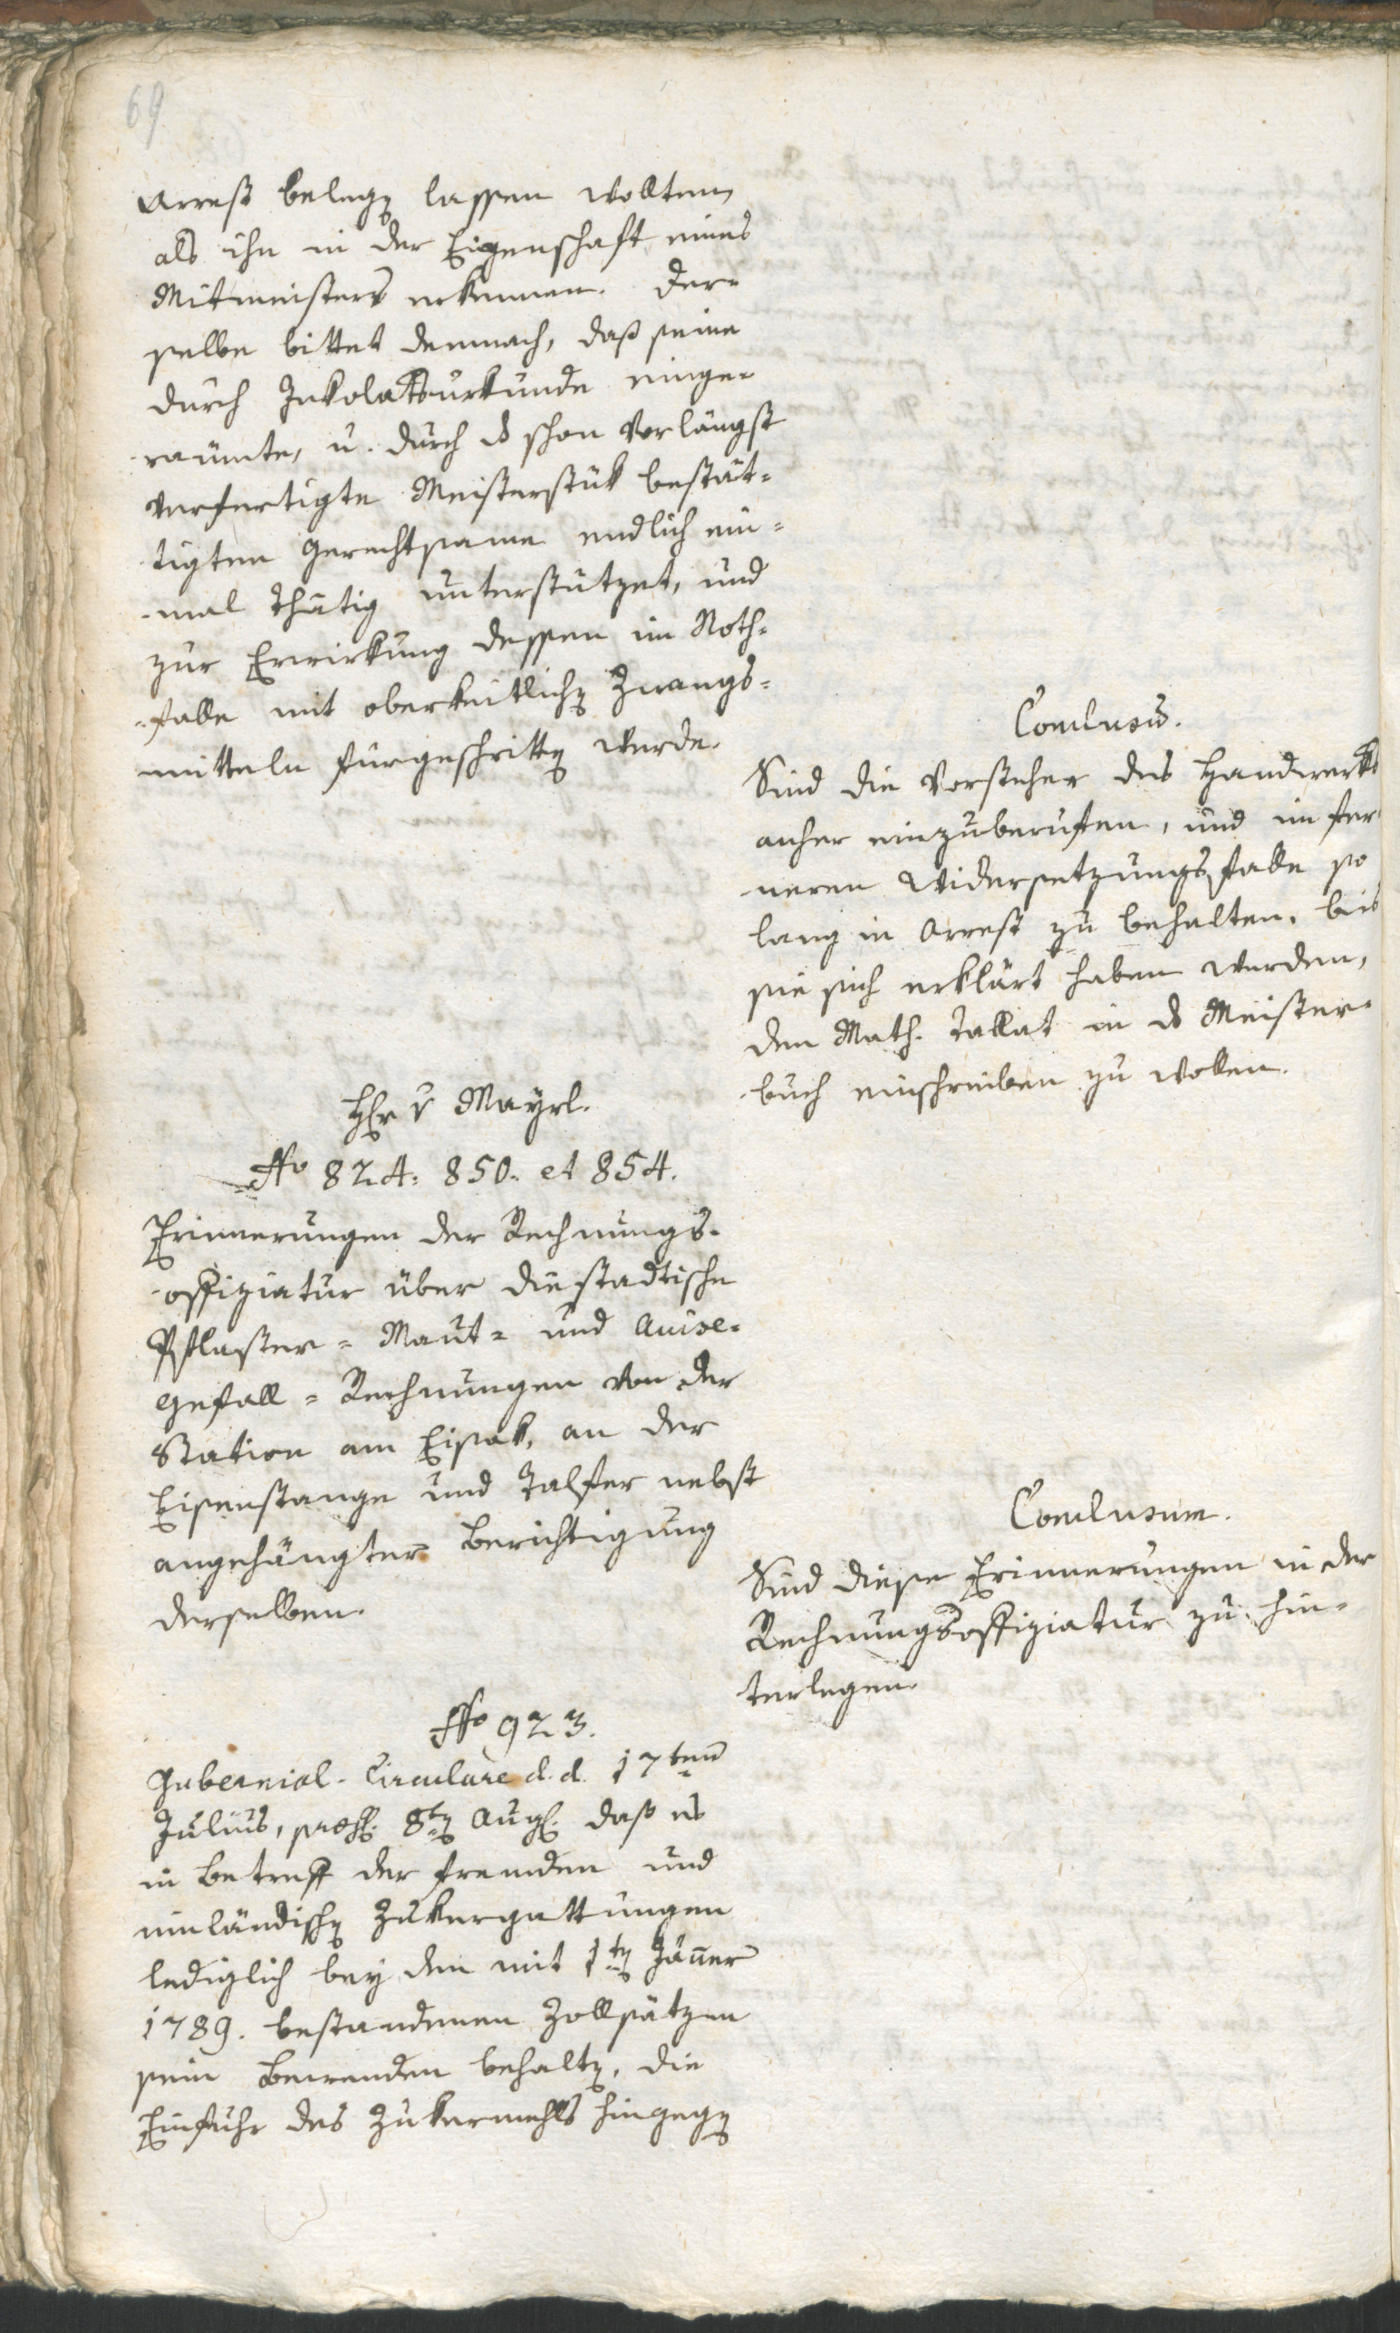 69
Arrest belegen lassen wolten,
als ihn in der Eigenschaft eines
Mitmeisters erkennen. Der=
selbe bittet demnach, daß seine
durch Inkolatsurkunde einge=
raumte, u. durch ds schon vorlängst
verfertigte Meisterstük bestät=
tigten Gerechtsame endlich ein=
mal thätig unterstützet, und
zur Erwirkung dessen im Noth=
falle mit oberkeitlichen Zwangs=
mitteln fürgeschritten werde.
Conclusum.
Sind die Vorsteher des Handwerks
anher einzuberuffen, und im fer
neren Widersetzungsfalle so
lang in Arrest zu behalten, bis
sie sich erklärt haben werden,
den Math. Tallat in ds Meister=
buch einschreiben zu wollen.
Hr v Mayrl.
No 824: 850: et 854.
Erinnerungen der Rechnungs=
offiziatur über die stadtische
Pflaster= Maut= und Avise=
gefäll= Rechnungen von der
Station am Eisak, an der
Eisenstange und Talfer nebst
angehängter Berichtigung
derselben.
Conclusum.
Sind diese Erinnerungen in der
Rechnungsoffiziatur zu hin=
terlegen.
No 923.
Gubernial-Circulare d. d. 17ten
Julius, præs. 8ten Aug. daß es
in Betreff der fremden und
einländischen Zukergattungen
lediglich bey den mit 1ten Jäner
1789. bestandenen Zollsätzen
sein Bewenden behalten, die
Einfuhr des Zukermehls hingegen